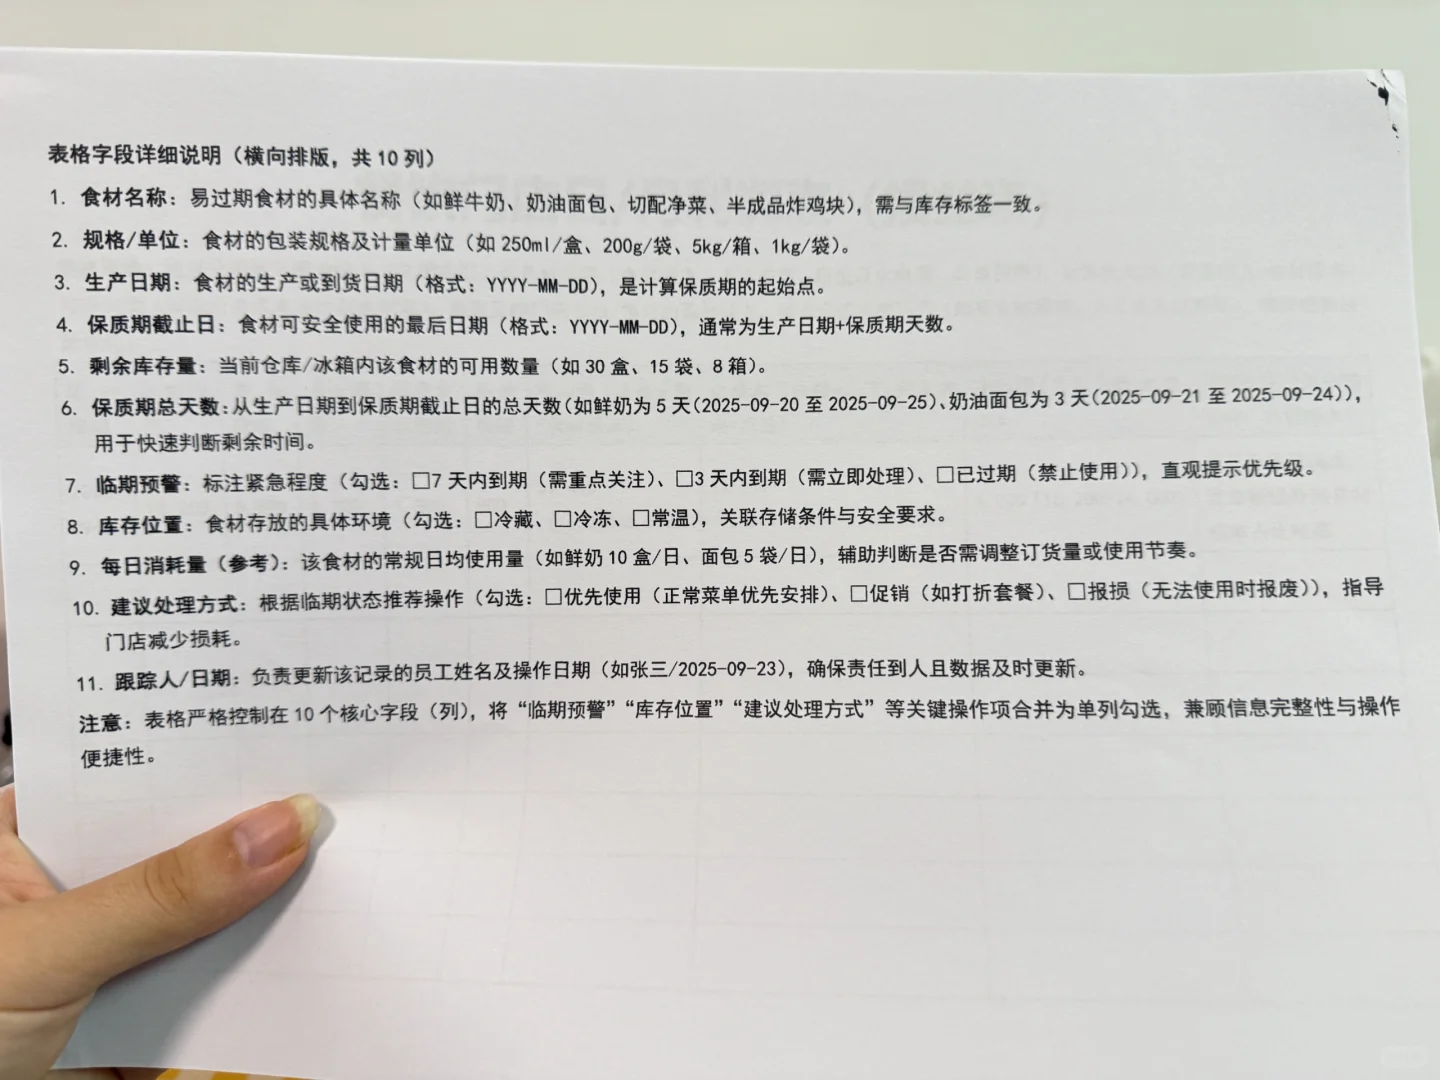 表格字段详细说明（横向排版，共 10 列）
1. 食材名称：易过期食材的具体名称（如鲜牛奶、奶油面包、切配净菜、半成品炸鸡块），需与库存标签一致。
2. 规格/单位：食材的包装规格及计量单位（如 250ml/盒、200g/袋、5kg/箱、1kg/袋）。
3. 生产日期：食材的生产或到货日期（格式：YYYY-MM-DD），是计算保质期的起始点。
4. 保质期截止日：食材可安全使用的最后日期（格式：YYYY-MM-DD），通常为生产日期+保质期天数。
5. 剩余库存量：当前仓库/冰箱内该食材的可用数量（如 30 盒、15 袋、8 箱）。
6. 保质期总天数：从生产日期到保质期截止日的总天数（如鲜奶为 5 天（2025-09-20 至 2025-09-25）、奶油面包为 3 天（2025-09-21 至 2025-09-24）），
用于快速判断剩余时间。
7. 临期预警：标注紧急程度（勾选：□7 天内到期（需重点关注）、□3 天内到期（需立即处理）、□已过期（禁止使用）），直观提示优先级。
8. 库存位置：食材存放的具体环境（勾选：□冷藏、□冷冻、□常温），关联存储条件与安全要求。
9. 每日消耗量（参考）：该食材的常规日均使用量（如鲜奶 10 盒/日、面包 5 袋/日），辅助判断是否需调整订货量或使用节奏。
10. 建议处理方式：根据临期状态推荐操作（勾选：□优先使用（正常菜单优先安排）、□促销（如打折套餐）、□报损（无法使用时报废）），指导
门店减少损耗。
11. 跟踪人/日期：负责更新该记录的员工姓名及操作日期（如张三/2025-09-23），确保责任到人且数据及时更新。
注意：表格严格控制在 10 个核心字段（列），将“临期预警”“库存位置”“建议处理方式”等关键操作项合并为单列勾选，兼顾信息完整性与操作
便捷性。